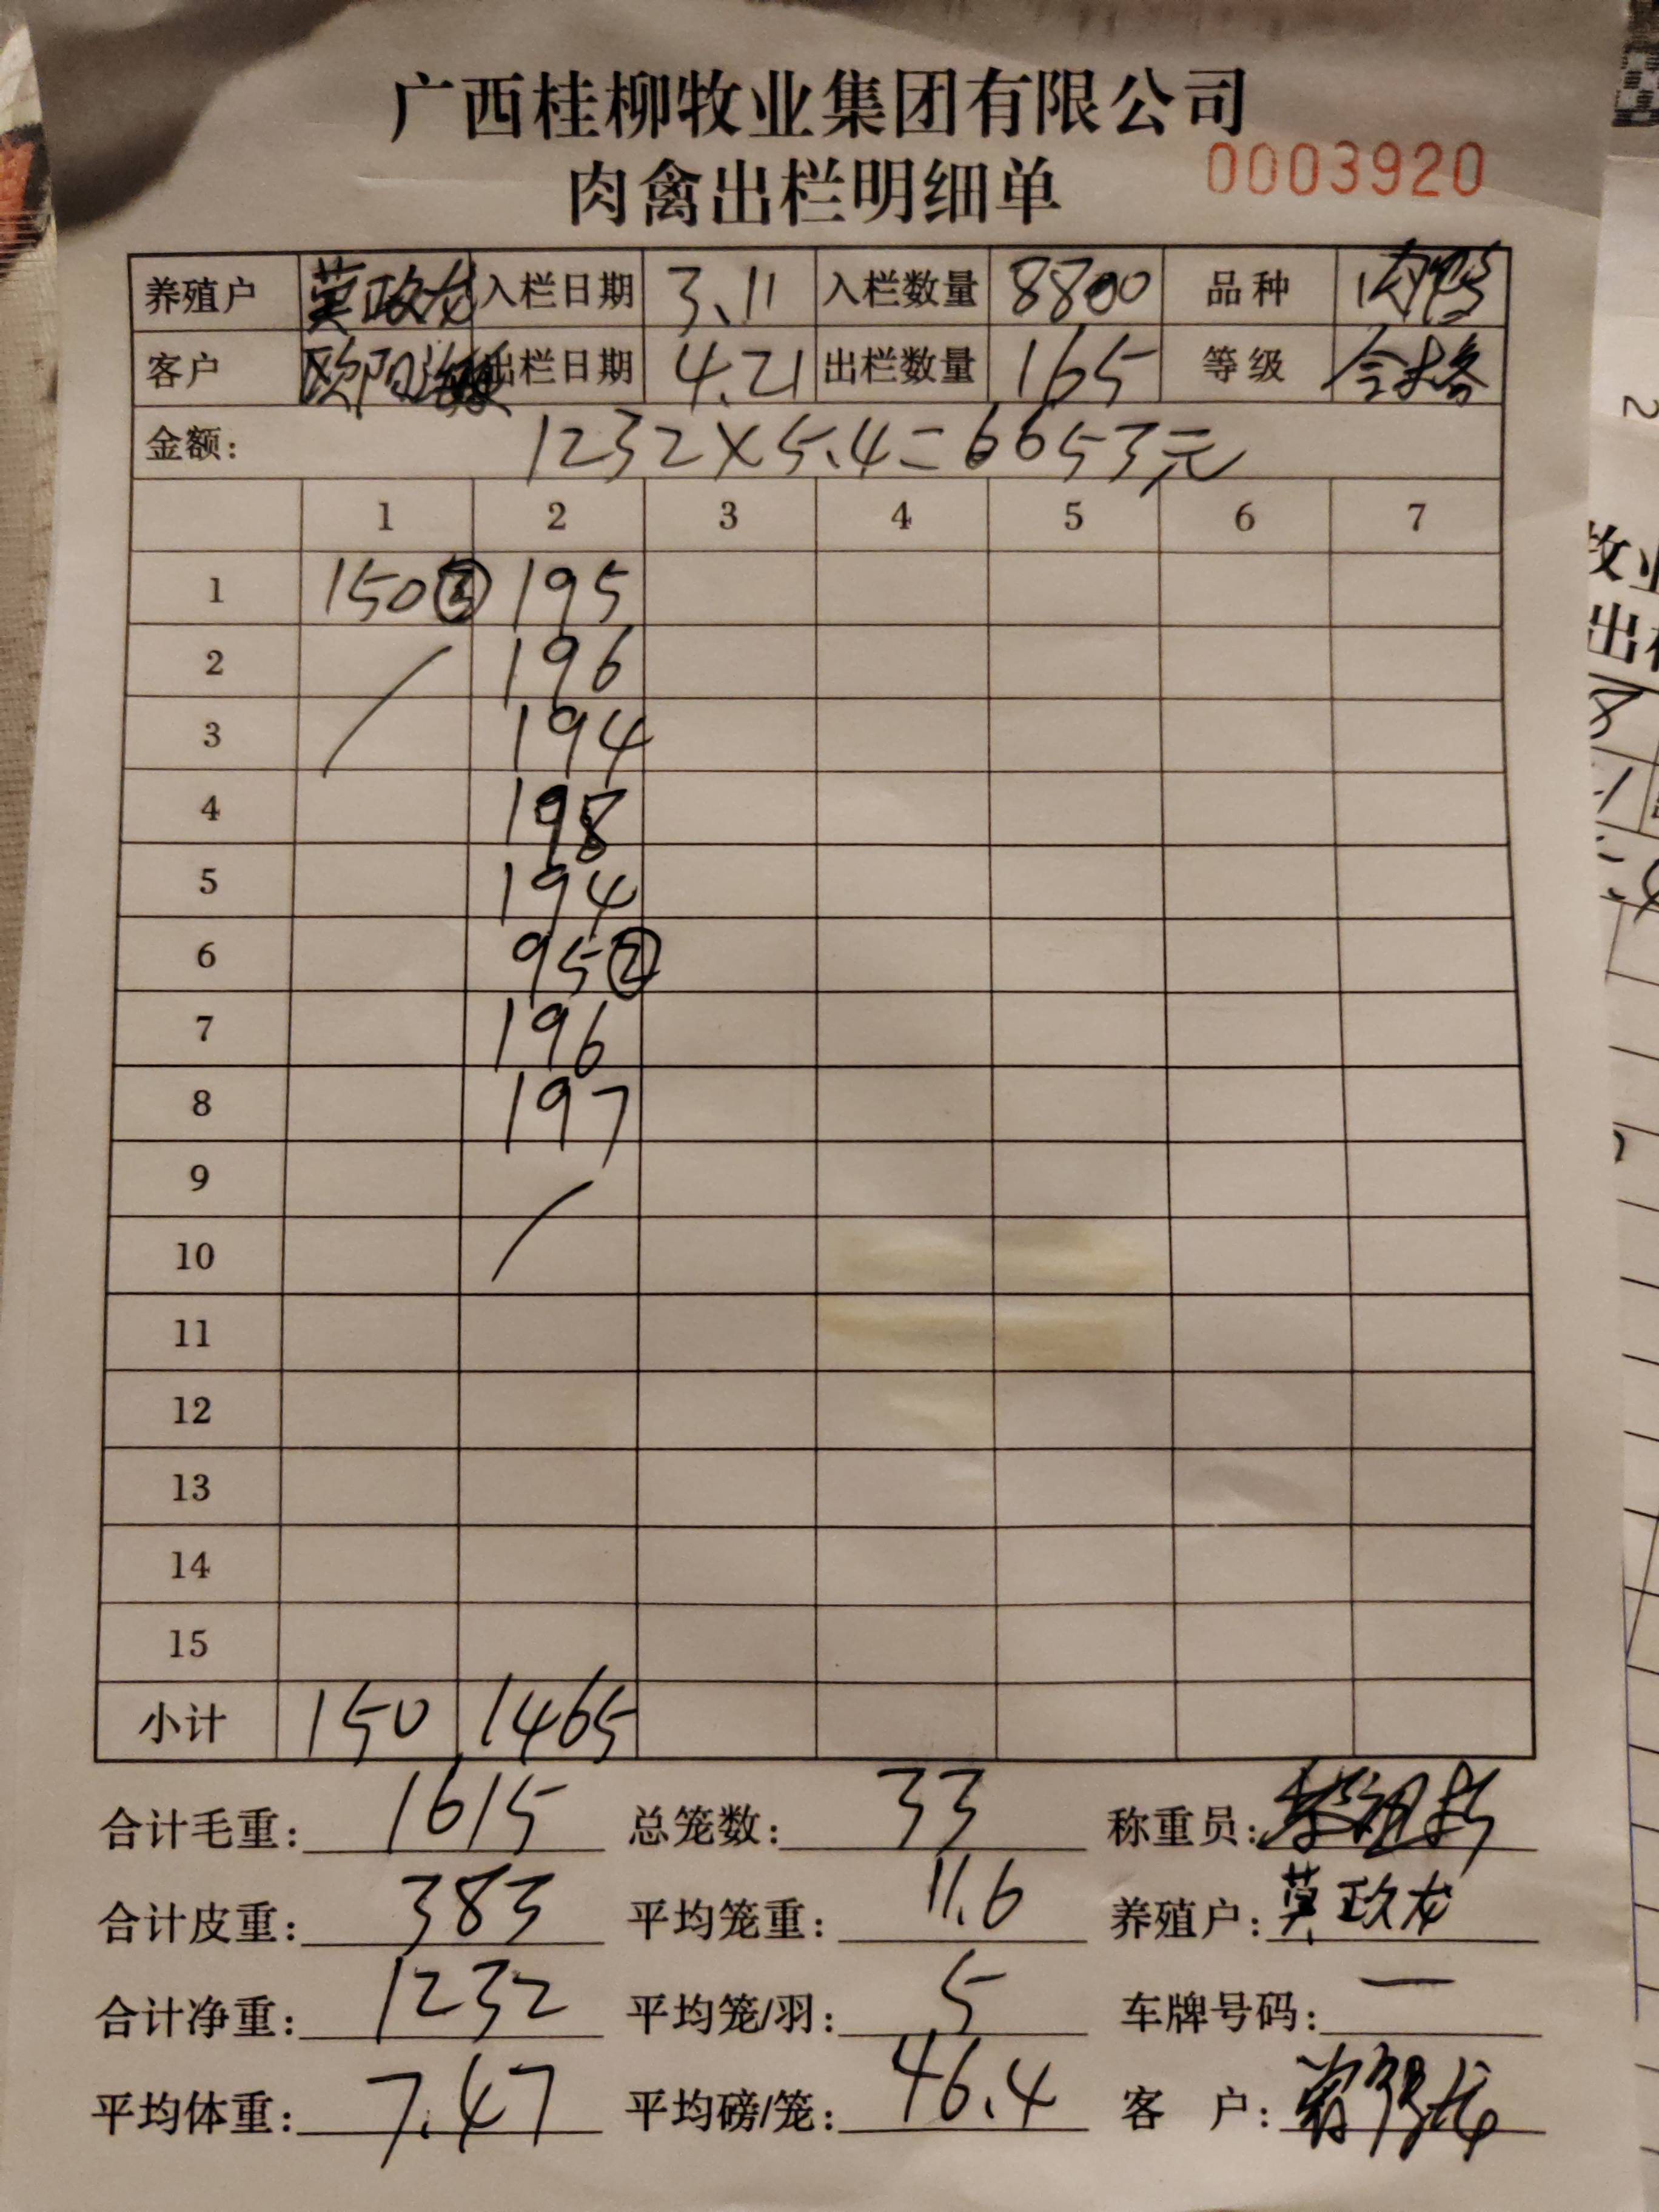 广西桂柳牧业集团有限公司
肉禽出栏明细单 0003920
养殖户 莫政龙 入栏日期 3.11 入栏数量 8800 品种 肉鸭
客户 欧阳海 出栏日期 4.21 出栏数量 165 等级 合格
金额: 1232×5.4=6653元
1 2 3 4 5 6 7
1 150③ 195
2 196
3 194
4 198
5 194
6 95②
7 196
8 197
9
10
11
12
13
14
15
小计 150 1465
合计毛重: 1615 总笼数: 33 称重员:
合计皮重: 383 平均笼重: 11.6 养殖户: 莫政龙
合计净重: 1232 平均笼/羽: 5 车牌号码: —
平均体重: 7.47 平均磅/笼: 46.4 客 户: